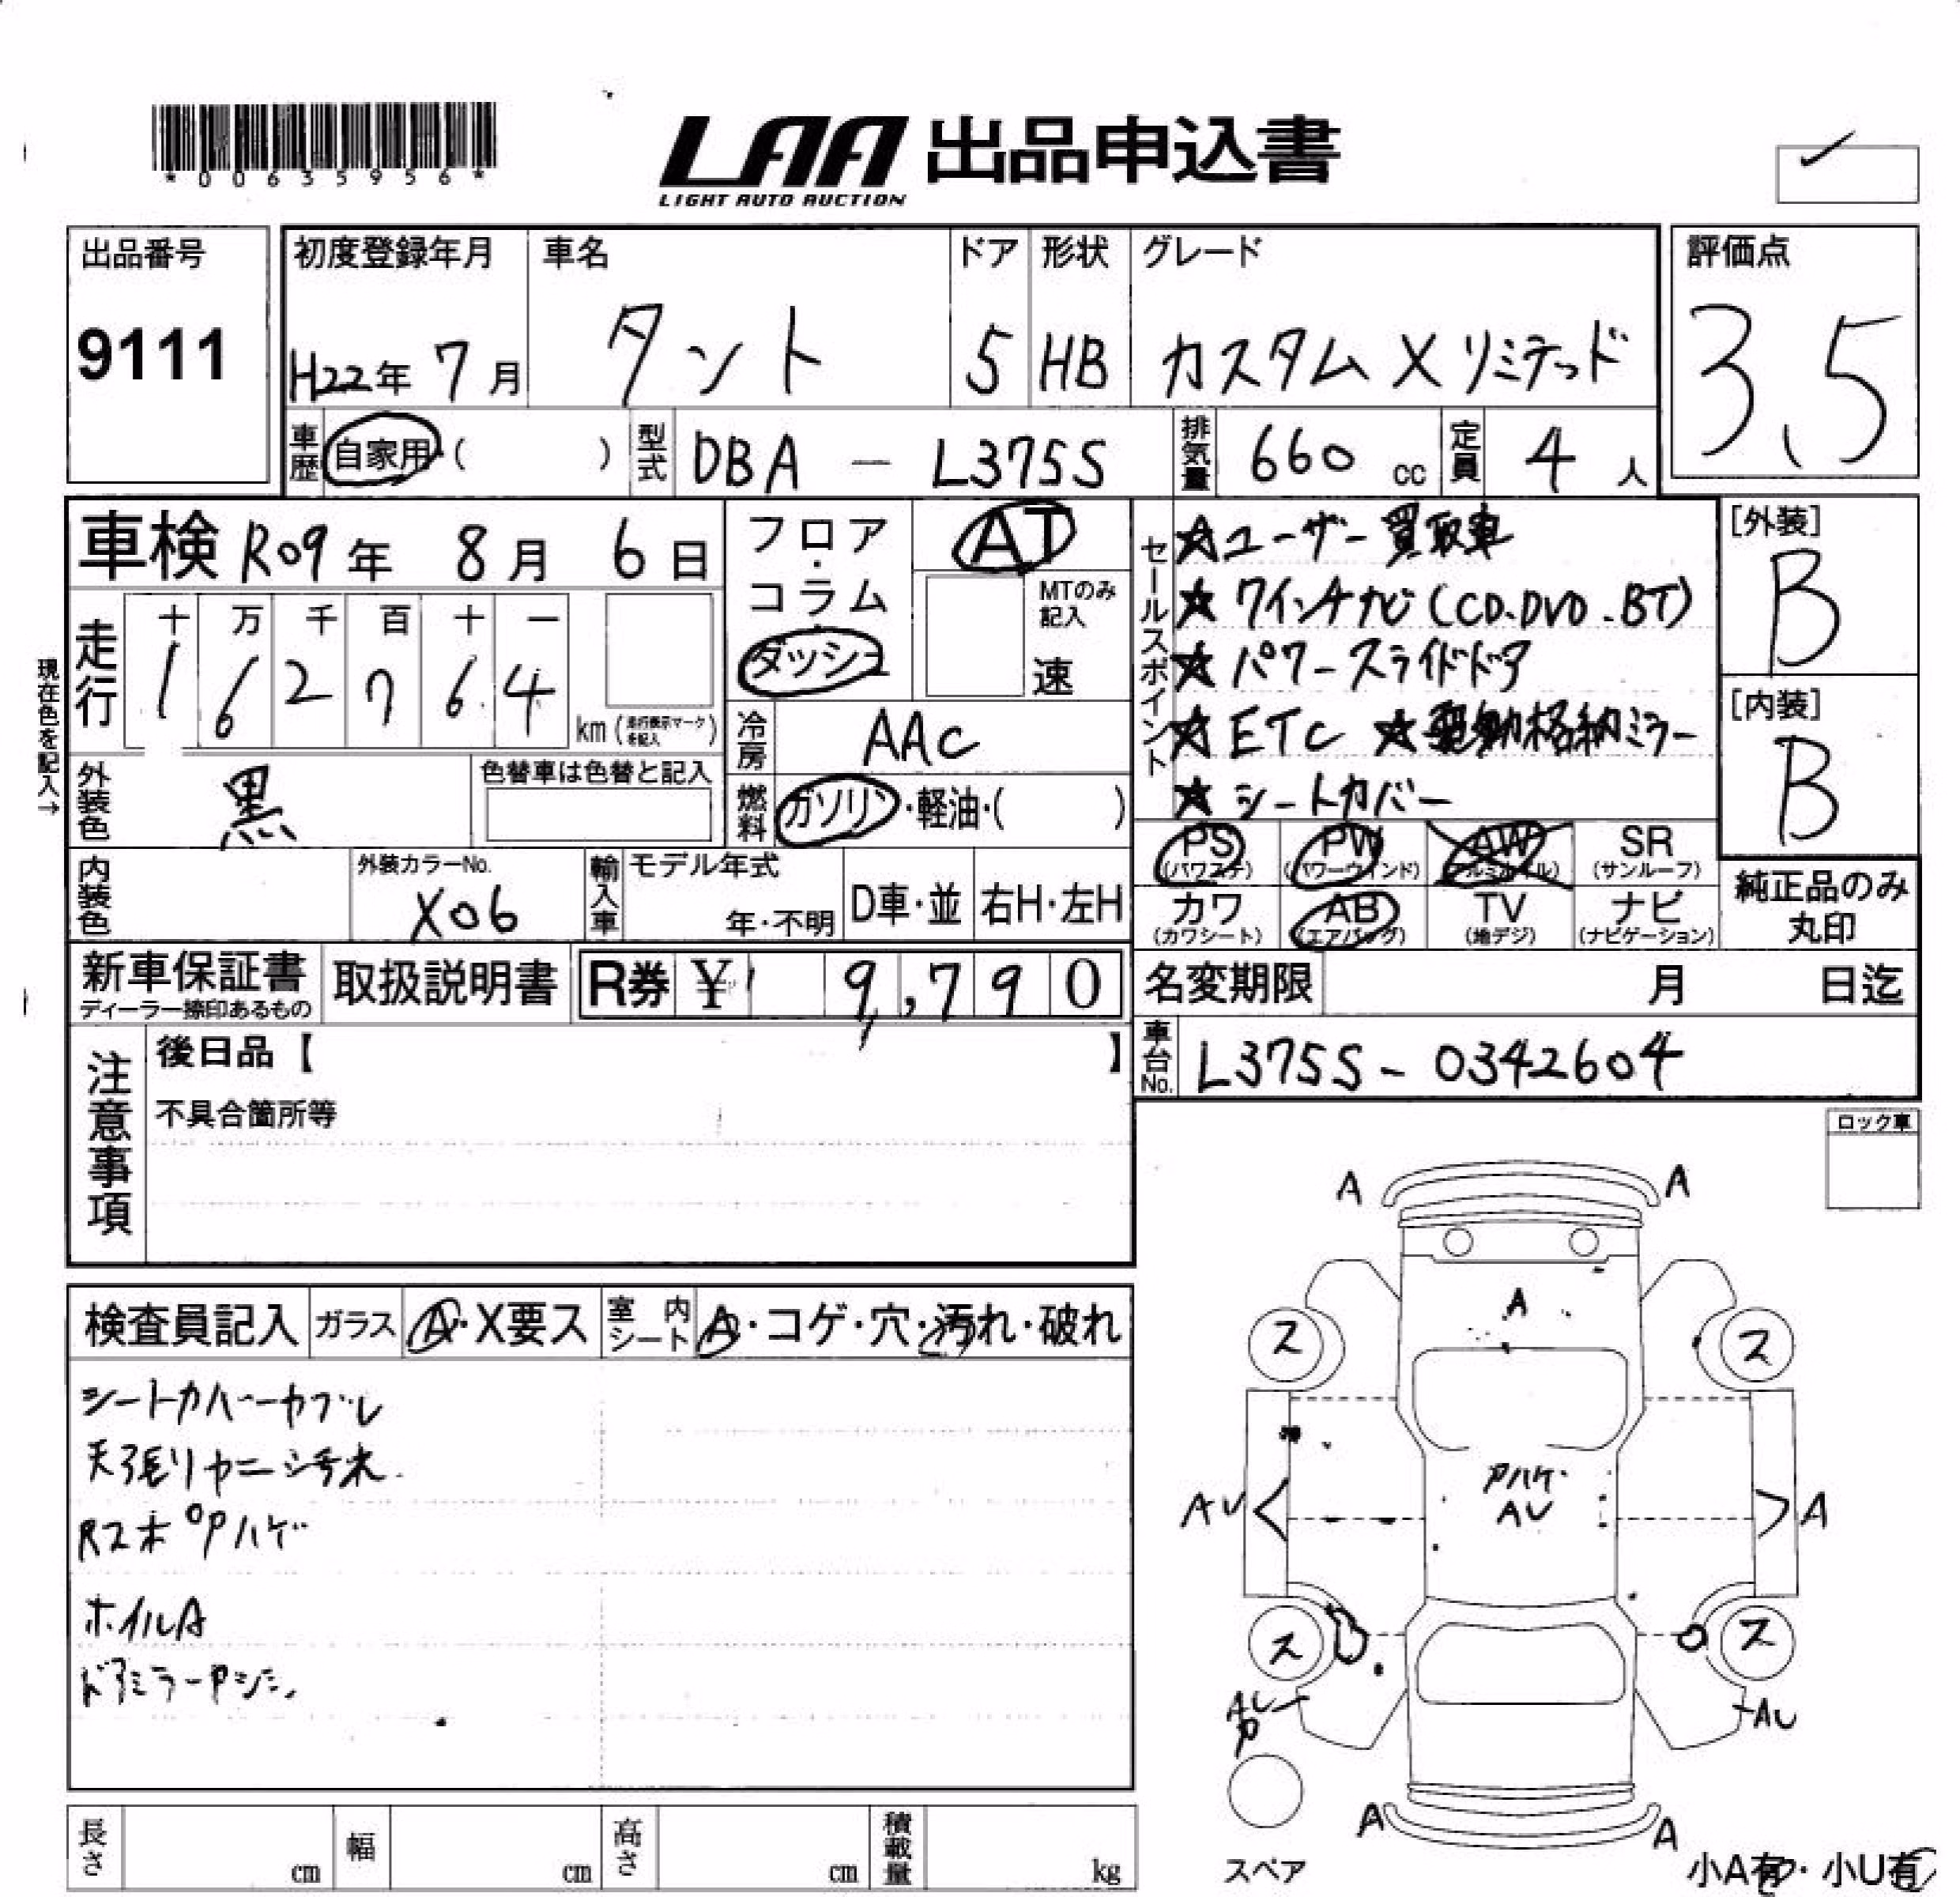 *00635956*
LAA 出品申込書
LIGHT AUTO AUCTION
出品番号
9111
初度登録年月
H22年 7月
車名
タント
ドア
5
形状
HB
グレード
カスタム X リミテッド
評価点
3.5
車歴 自家用・( )
型式 DBA - L375S
排気量 660 cc
定員 4 人
車検 R09年 8月 6日
現在色を記入→
走行
十 万 千 百 十 一
1 6 2 7 6 4
km (走行表示マークを記入)
フロア・コラム・ダッシュ
AT
MTのみ記入
速
冷房 AAC
燃料 ガソリン・軽油・( )
外装色 黒
色替車は色替と記入
内装色
外装カラーNo.
X06
輸入車
モデル年式
年・不明
D車・並
右H・左H
セールスポイント
☆ユーザー買取車
★7インチナビ(CD.DVD.BT)
★パワースライドドア
★ETC ★電動格納ミラー
★シートカバー
[外装]
B
[内装]
B
PS (パワステ)
PW (パワーウインド)
AW (アルミホイル)
SR (サンルーフ)
カワ (カワシート)
AB (エアバッグ)
TV (地デジ)
ナビ (ナビゲーション)
純正品のみ丸印
新車保証書
ディーラー捺印あるもの
取扱説明書
R券 ¥ 9,790
名変期限 月 日迄
車台No. L375S-0342604
注意事項
後日品【 】
不具合箇所等
ロック車
検査員記入
ガラス A・X要ス
室内シート A・コゲ・穴・汚れ・破れ
シートカバーカブレ
天張リヤニシ汚れ
RスポPハゲ
ホイルA
ドアミラーPジミ
A A
A
ス ス
AU A
Pハゲ
AU
ス ス
AU
P
AU
A A
スペア
小A有・小U有
長さ cm
幅 cm
高さ cm
積載量 kg